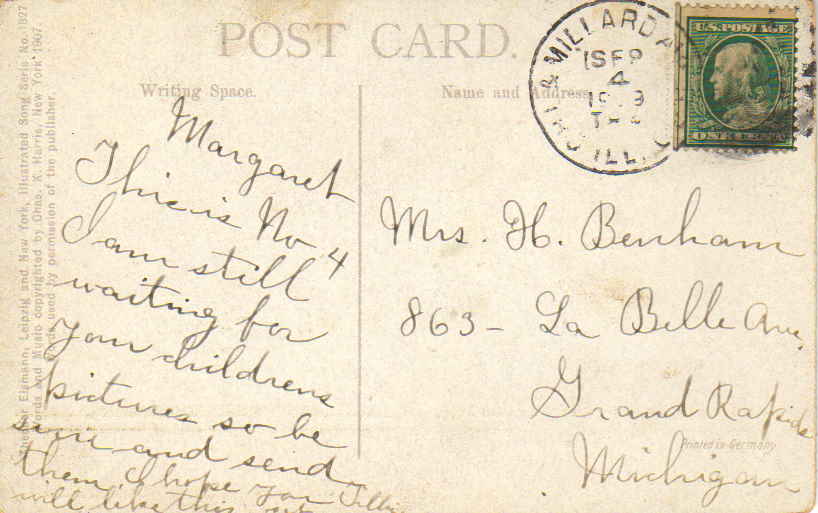 POST CARD.
Writing Space.
Name and Address
Theodor Eismann, Leipzig and New York, Illustrated Song Serie No. 1827
Words and Music copyrighted by Chas. K. Harris, New York 1907.
Words used by permission of the publisher.
MILLARD AV.
SEP
4
CHI ILL.
U.S. POSTAGE
ONE CENT
Margaret
This is No 4
I am still
waiting for
your childrens
pictures so be
sure and send
them. I hope you
will like this
Tillie
Mrs. H. Benham
863 - La Belle Ave.
Grand Rapids
Michigan
Printed in Germany